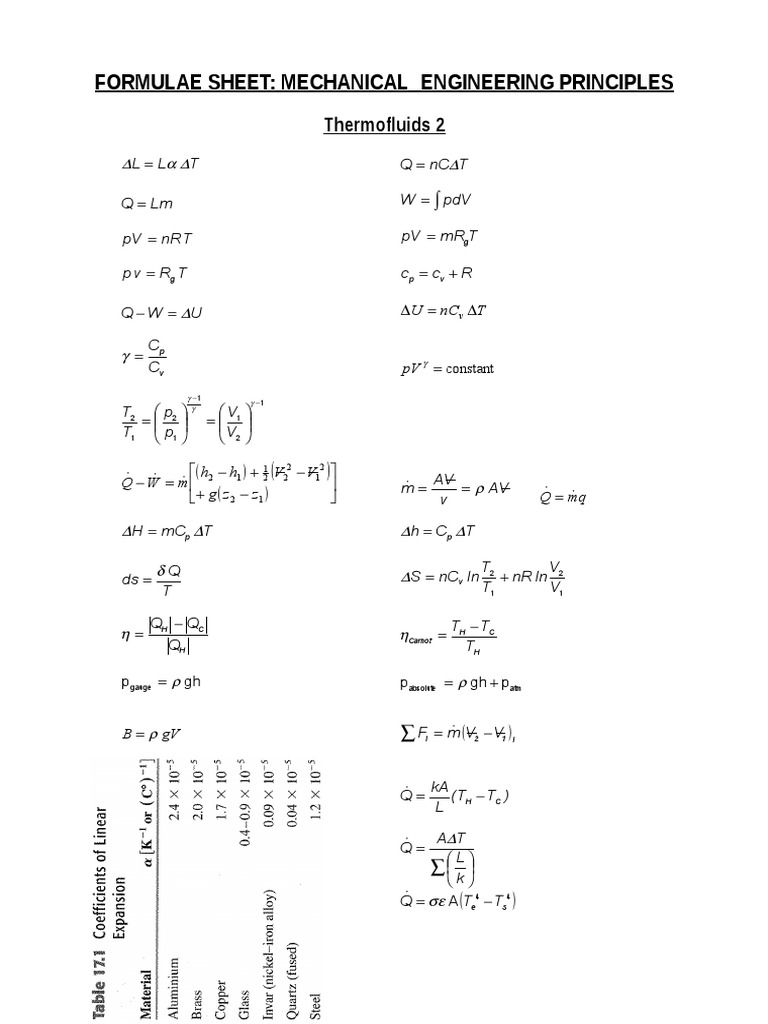 FORMULAE SHEET: MECHANICAL ENGINEERING PRINCIPLES
Thermofluids 2
ΔL = Lα ΔT
Q = nCΔT
Q = Lm
W = ∫ pdV
pV = nRT
pV = mR_gT
pv = R_gT
c_p = c_v + R
Q − W = ΔU
ΔU = nC_v ΔT
γ = C_p / C_v
pV^γ = constant
T_2/T_1 = (p_2/p_1)^((γ−1)/γ) = (V_1/V_2)^(γ−1)
Q̇ − Ẇ = ṁ[(h_2 − h_1) + ½(V̶_2^2 − V̶_1^2) + g(z_2 − z_1)]
ṁ = AV̶/v = ρ AV̶
Q̇ = ṁq
ΔH = mC_p ΔT
Δh = C_p ΔT
ds = δQ/T
ΔS = nC_v ln T_2/T_1 + nR ln V_2/V_1
η = (|Q_H| − |Q_C|)/|Q_H|
η_Carnot = (T_H − T_C)/T_H
p_gauge = ρ gh
p_absolute = ρ gh + p_atm
B = ρ gV
∑F_i = ṁ(V̶_2 − V̶_1)_i
Q̇ = kA/L (T_H − T_C)
Q̇ = AΔT / ∑(L/k)
Q̇ = σε A(T_e^4 − T_s^4)
Table 17.1 Coefficients of Linear
Expansion
Material α [K⁻¹ or (C°)⁻¹]
Aluminium 2.4 × 10⁻⁵
Brass 2.0 × 10⁻⁵
Copper 1.7 × 10⁻⁵
Glass 0.4–0.9 × 10⁻⁵
Invar (nickel–iron alloy) 0.09 × 10⁻⁵
Quartz (fused) 0.04 × 10⁻⁵
Steel 1.2 × 10⁻⁵